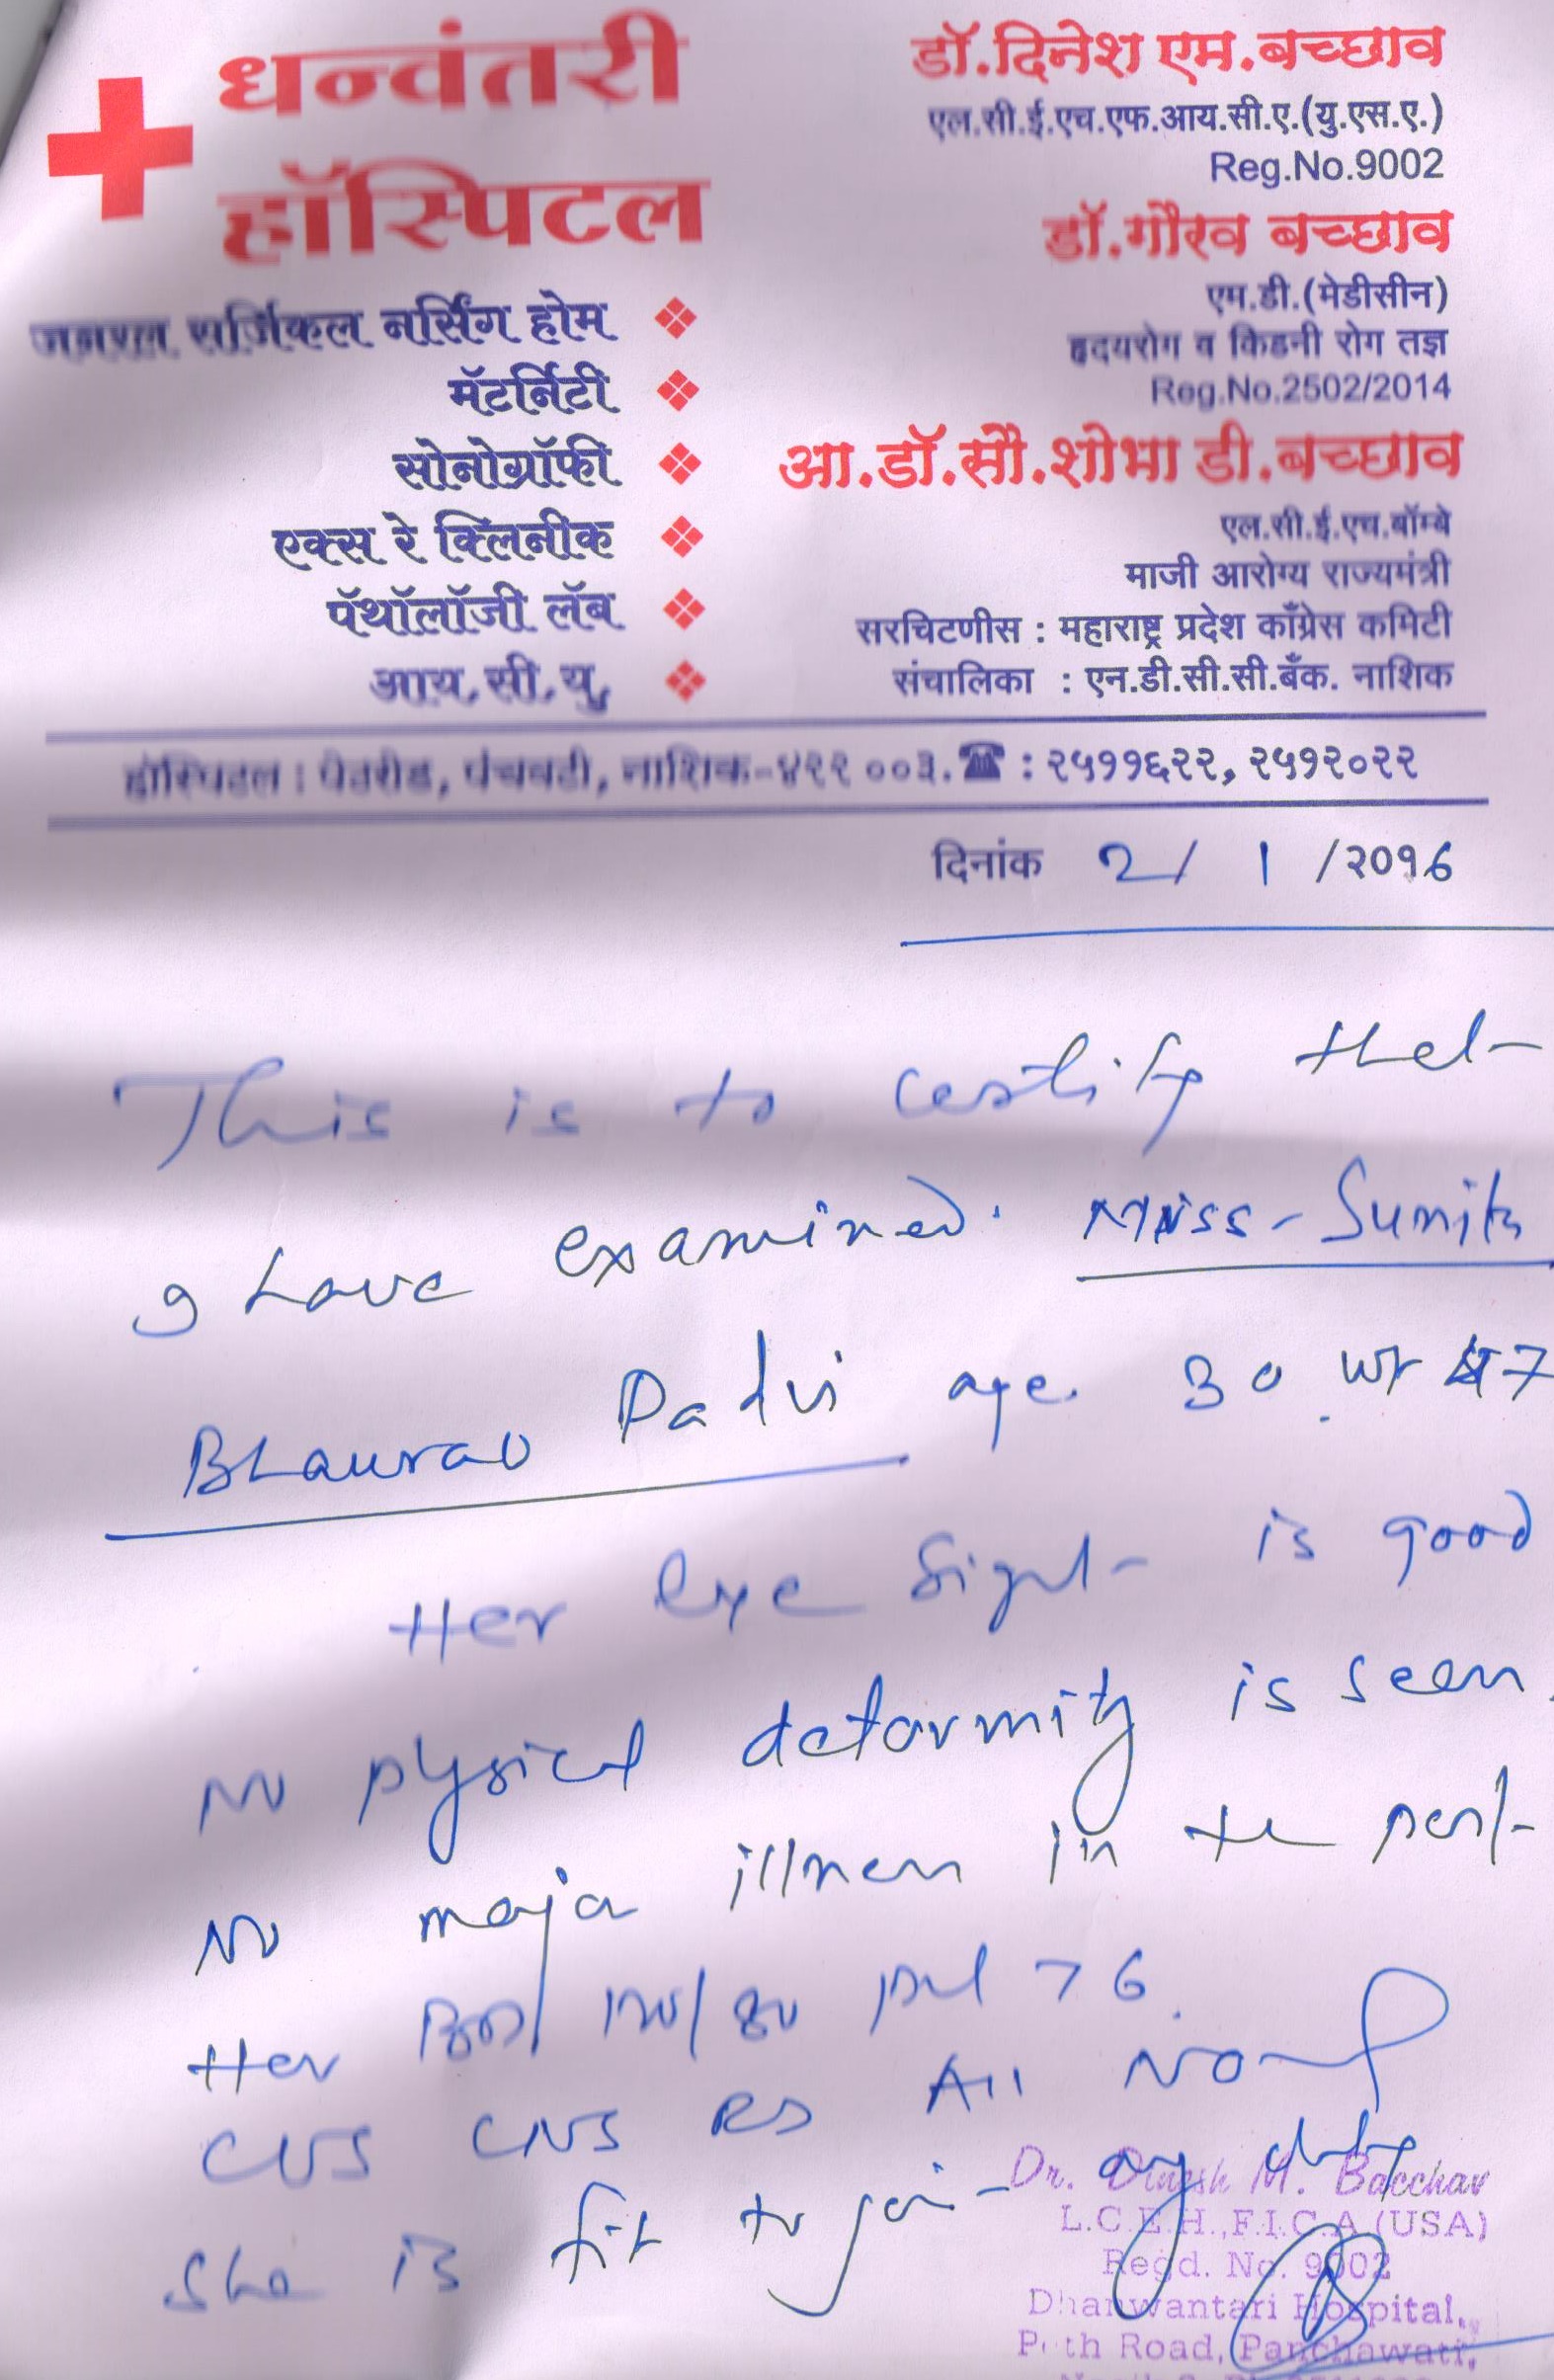 धन्वंतरी
हॉस्पिटल
जनरल सर्जिकल नर्सिंग होम
मॅटर्निटी
सोनोग्रॉफी
एक्स रे क्लिनीक
पॅथॉलॉजी लॅब
आय.सी.यु.
डॉ.दिनेश एम.बच्छाव
एल.सी.ई.एच.एफ.आय.सी.ए.(यु.एस.ए.)
Reg.No.9002
डॉ.गौरव बच्छाव
एम.डी.(मेडीसीन)
हृदयरोग व किडनी रोग तज्ञ
Reg.No.2502/2014
आ.डॉ.सौ.शोभा डी.बच्छाव
एल.सी.ई.एच.बॉम्बे
माजी आरोग्य राज्यमंत्री
सरचिटणीस : महाराष्ट्र प्रदेश काँग्रेस कमिटी
संचालिका : एन.डी.सी.सी.बँक. नाशिक
हॉस्पिटल : पेठरोड, पंचवटी, नाशिक-४२२ ००३. ☎ : २५११६२२, २५१२०२२
दिनांक 2/ 1 /२०१6
This is to certify that
I have examined. Miss - Sunita
Bhaurao Padvi age 30. wt 47
Her eye sight is good
No physical deformity is seen.
No major illness in the past
Her 120/80 pul 76.
CVS CNS RS All
She is fit to join any duty
Dr. Dinesh M. Bacchav
L.C.E.H.,F.I.C.A.(USA)
Regd. No. 9002
Dhanwantari Hospital,
Peth Road, Panchawati,